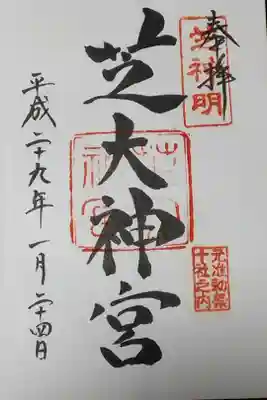 奉拝
芝神明
芝大神宮
元准勅祭
十社之内
平成二十九年一月二十四日